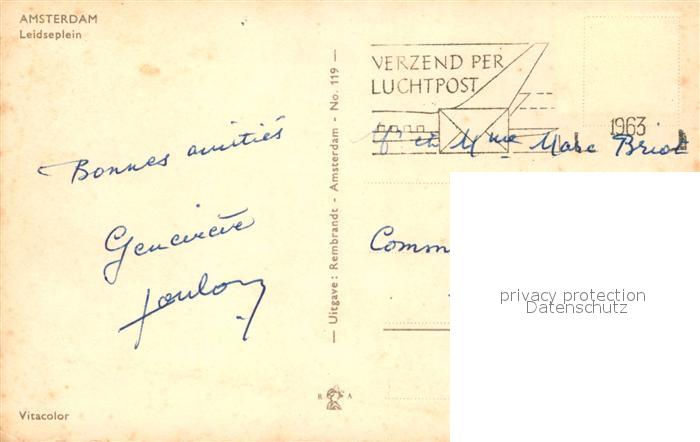 AMSTERDAM
Leidseplein
VERZEND PER
LUCHTPOST
1963
Bonnes amitiés
Geneviève
et Mme Marc Briot
Comm
— Uitgave: Rembrandt - Amsterdam - No. 119 —
privacy protection
Datenschutz
R A
Vitacolor